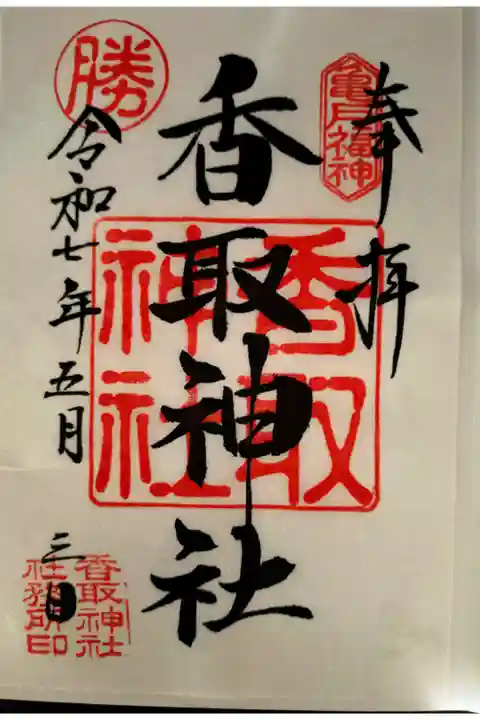 奉拝
亀戸福神
香取神社
香取神社
勝
令和七年五月
三日
香取神社
社務所印